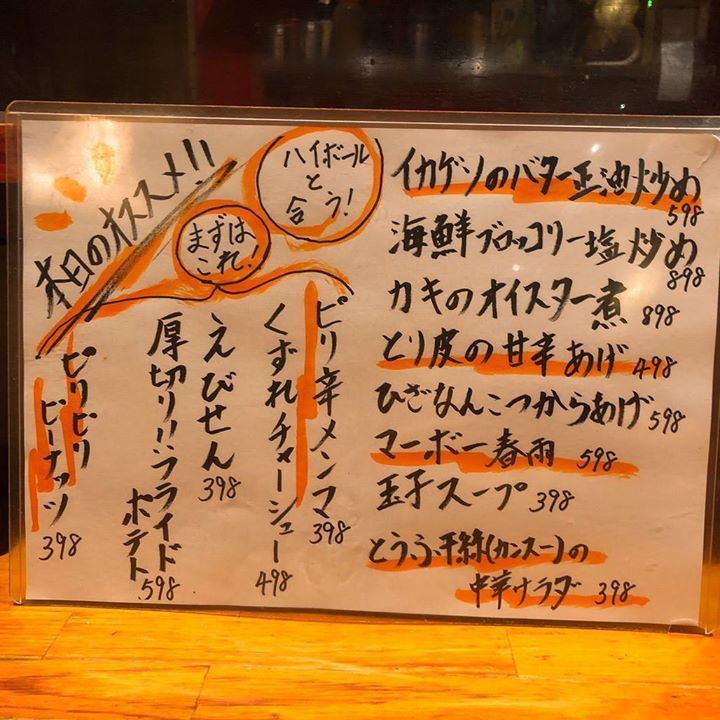 本日のオススメ!!
ハイボール
と
合う!
まずは
これ!
イカゲソのバター正油炒め
598
海鮮ブロッコリー塩炒め
898
カキのオイスター煮 898
とり皮の甘辛あげ 498
ひざなんこつからあげ 598
マーボー春雨 598
玉子スープ 398
とうふ干絲(カンスー)の
中華サラダ 398
ピリ辛メンマ 398
くずれチャーシュー 498
えびせん 398
厚切りフライド
ポテト 598
ピリピリ
ピーナッツ 398